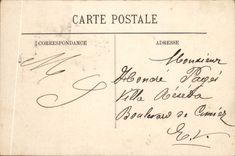 CARTE POSTALE
CORRESPONDANCE
ADRESSE
Monsieur
Honoré Pagés
Villa
Boulevard de Cimiez
E.V.